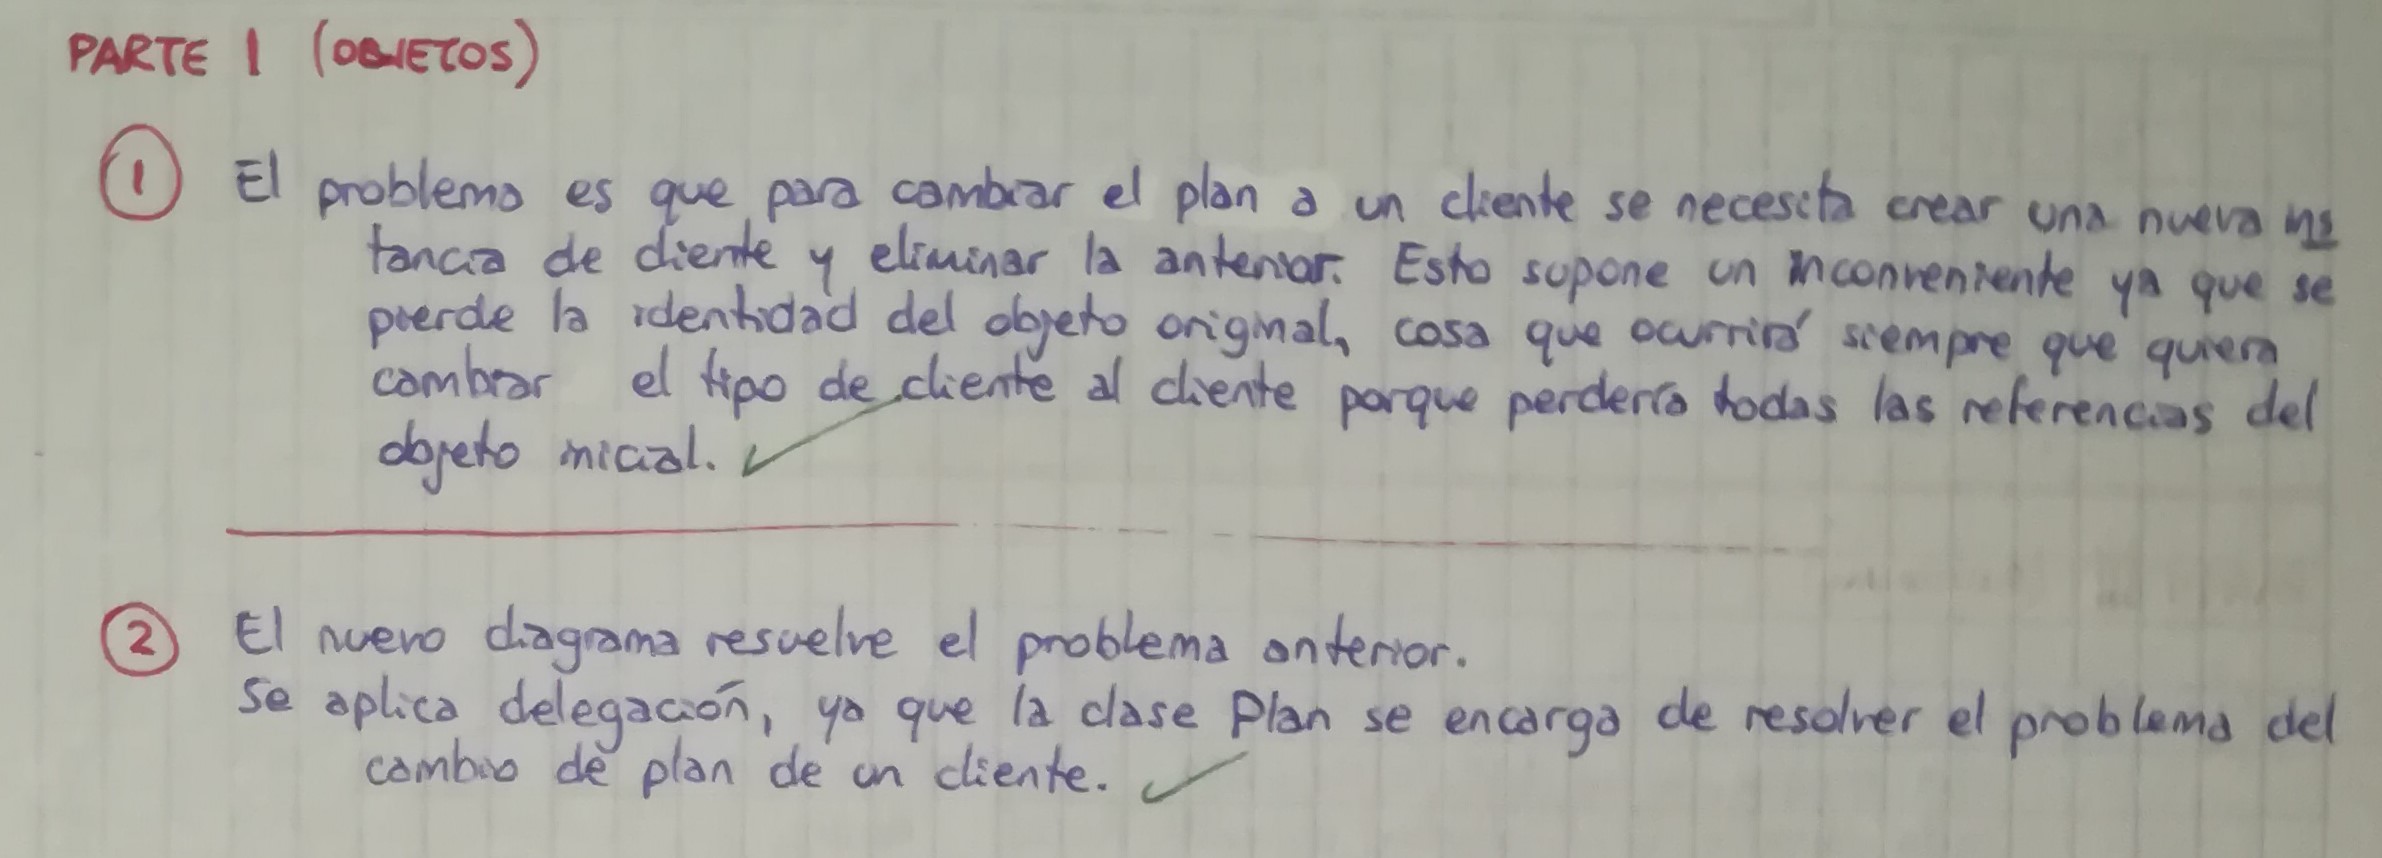 PARTE 1 (OBJETOS)
1 El problema es que para cambiar el plan a un cliente se necesita crear una nueva ins
tancia de cliente y eliminar la anterior. Esto supone un inconveniente ya que se
pierde la identidad del objeto original, cosa que ocurrirá siempre que quiera
cambiar el tipo de cliente al cliente porque perdería todas las referencias del
objeto inicial.
2 El nuevo diagrama resuelve el problema anterior.
Se aplica delegación, ya que la clase Plan se encarga de resolver el problema del
cambio de plan de un cliente.